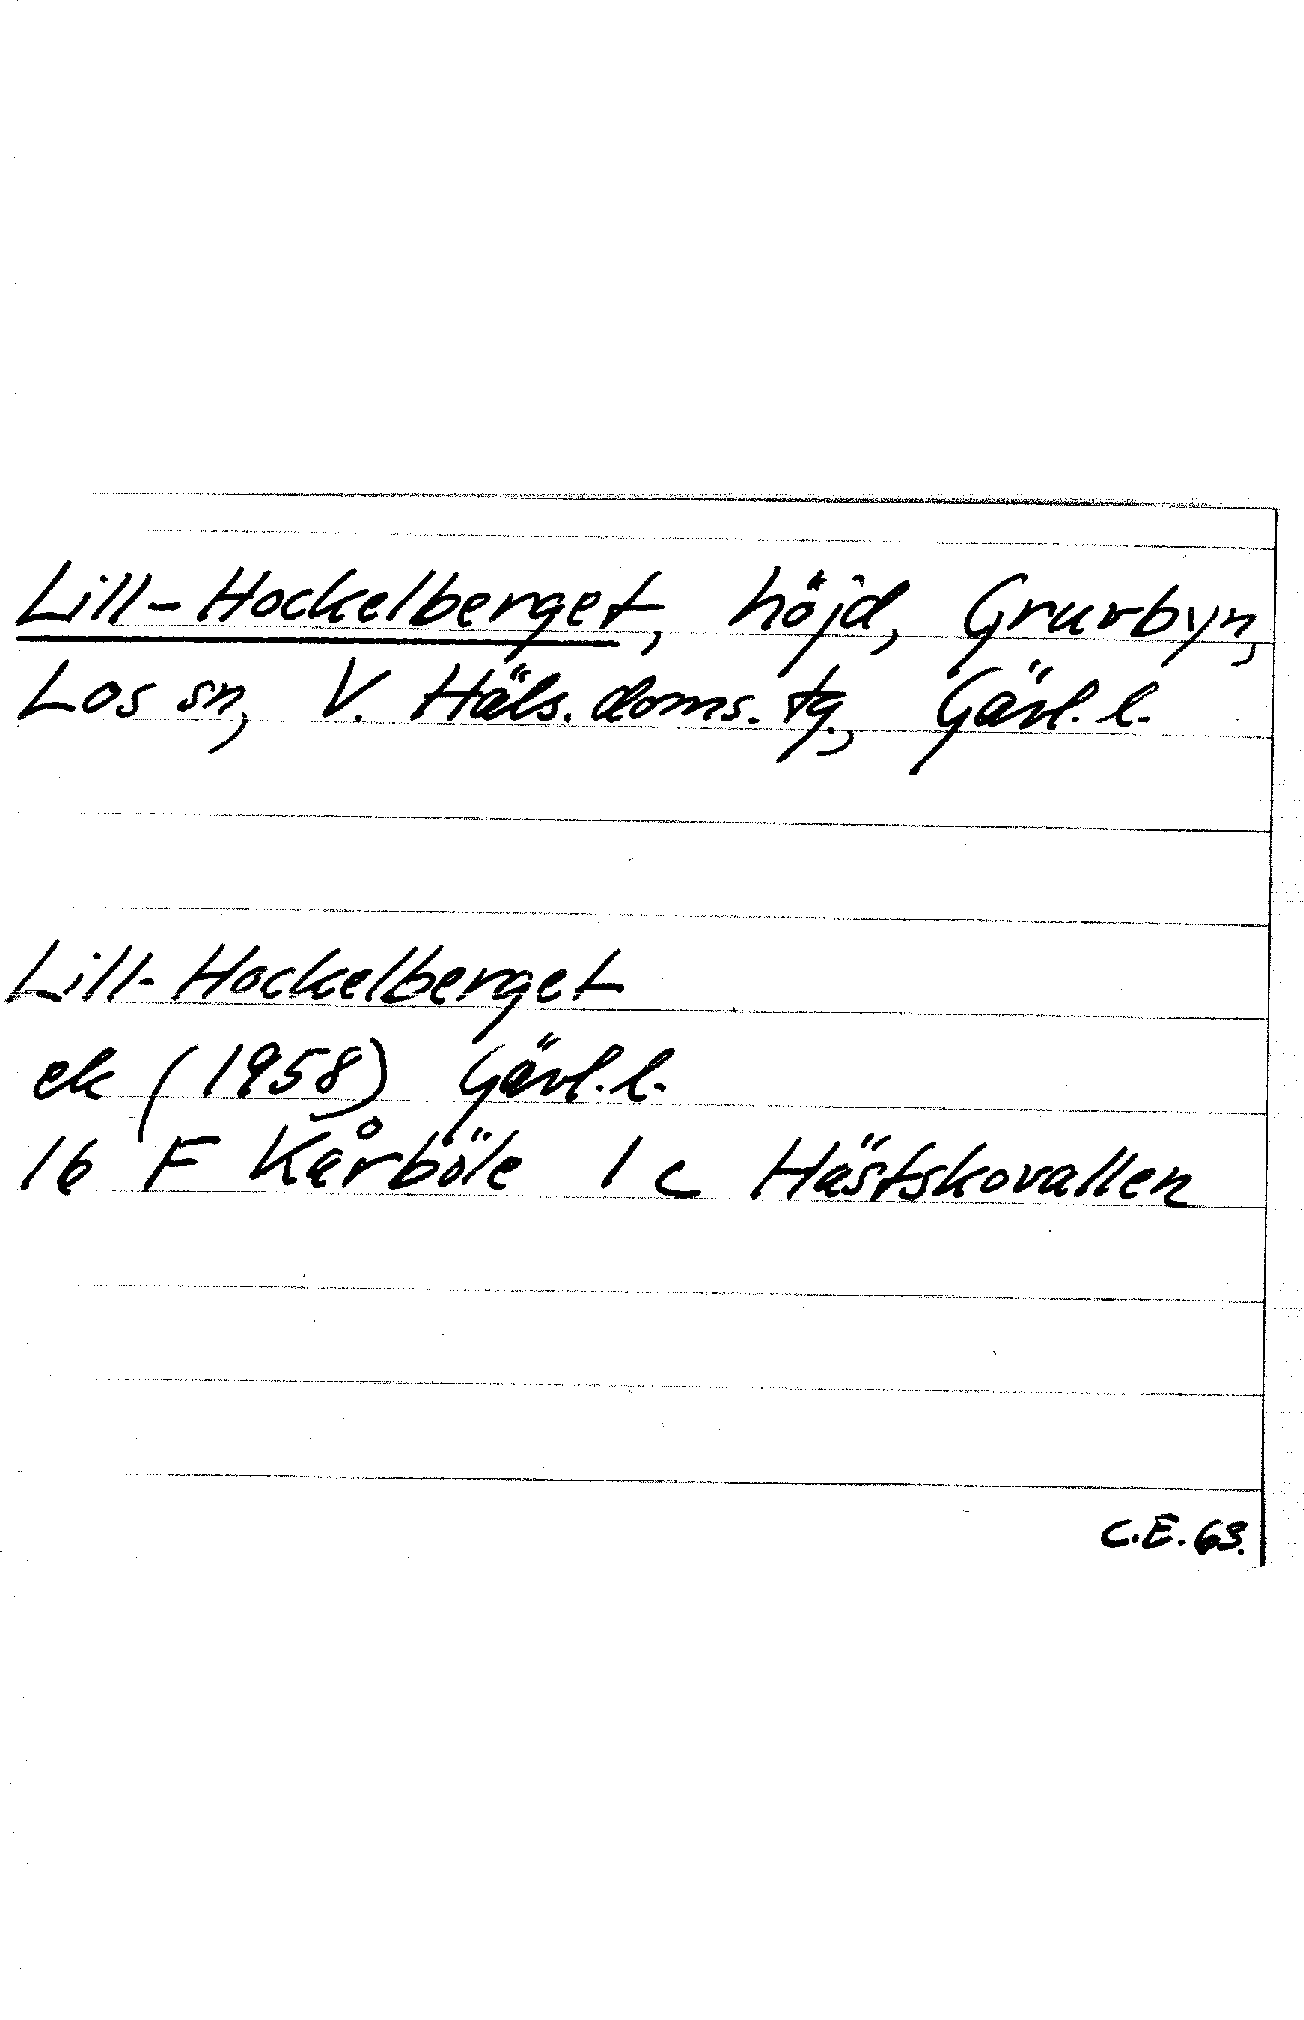 Lill-Hockelberget, höjd, Gruvbyn,
Los sn, V. Häls. doms. tg., Gävl. l.
Lill-Hockelberget
ek (1958) Gävl. l.
16 F Kårböle 1 c Hästskovallen
C.E. 63.